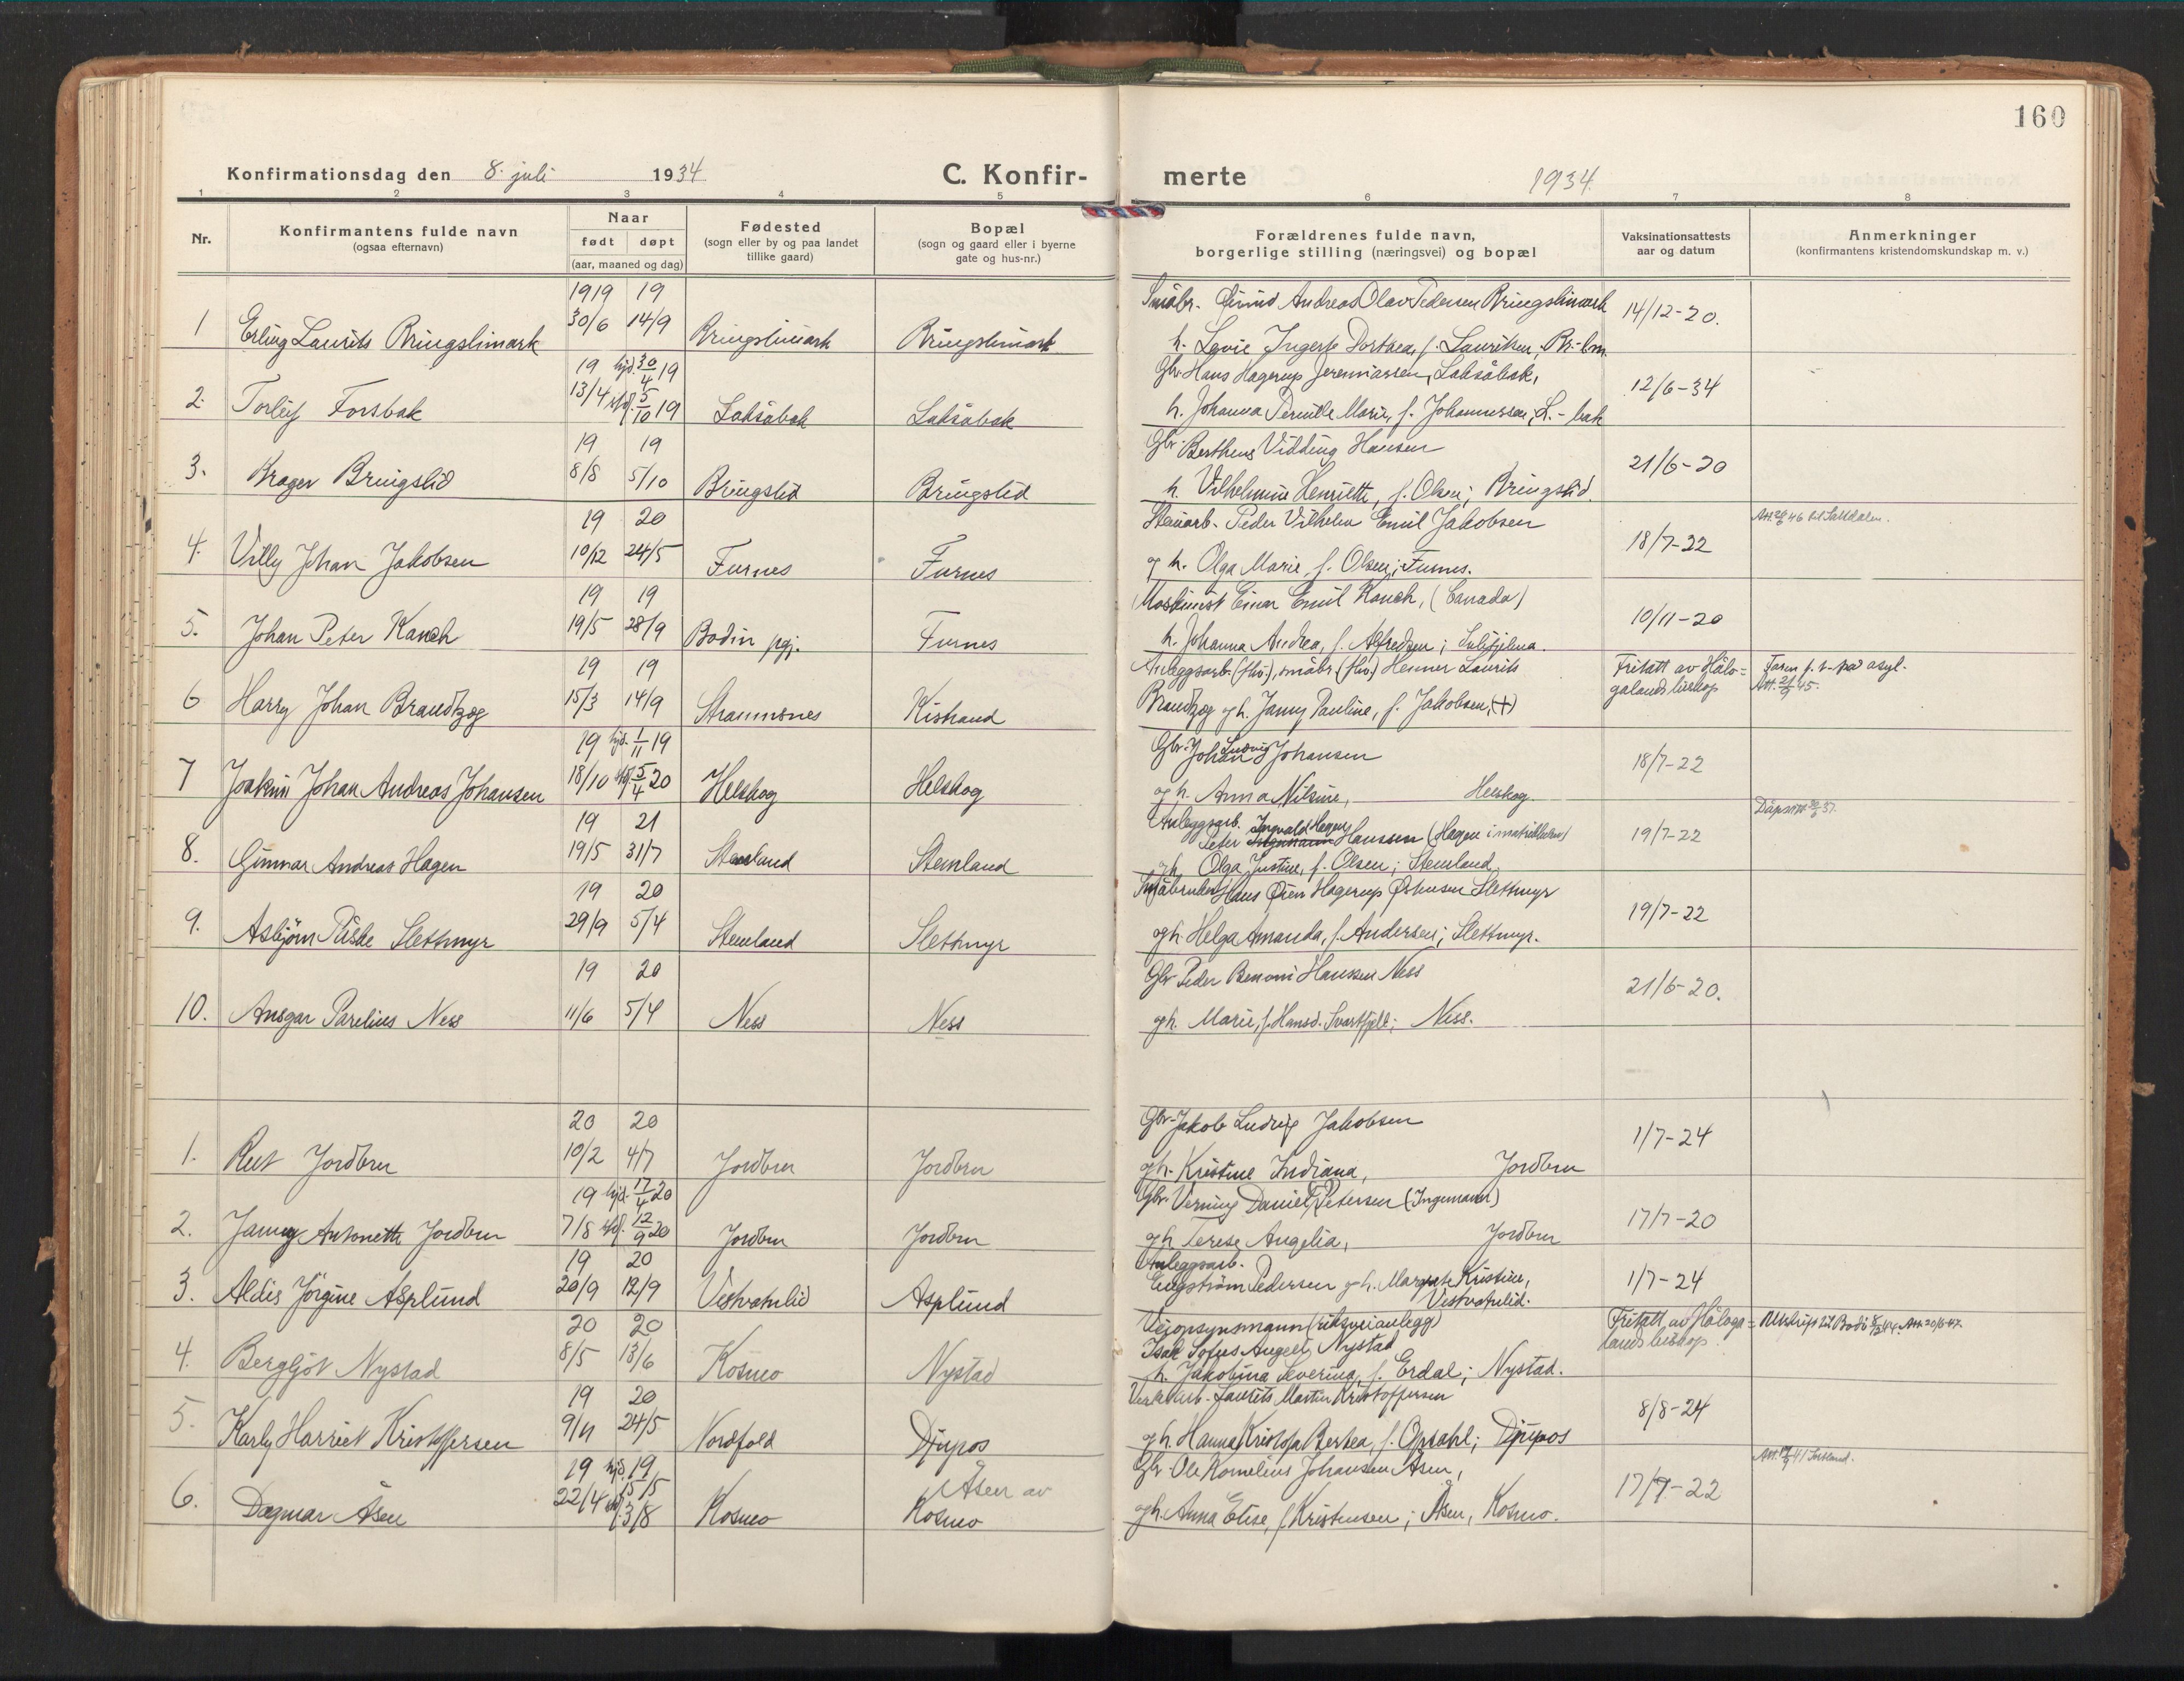 160
Konfirmationsdag den 8. juli 1934
C. Konfir-
merte
1934.
1 2 3 4 5 6 7 8
Nr.
Konfirmantens fulde navn
(ogsaa efternavn)
Naar
født døpt
(aar, maaned og dag)
Fødested
(sogn eller by og paa landet
tillike gaard)
Bopæl
(sogn og gaard eller i byerne
gate og hus-nr.)
Forældrenes fulde navn,
borgerlige stilling (næringsvei) og bopæl
Vaksinationsattests
aar og datum
Anmerkninger
(konfirmantens kristendomskundskap m. v.)
1919 19
1 Erling Laurits Bringslimark 30/6 14/9 Bringslimark Bringslimark
Småbr. Eivind Andreas Olav Pedersen Bringslimark 14/12-20.
h. Lovie Dortea, f. Lauritsen, Br.-lm.
19 hjd. 30/4 19
2. Torleif Forsbak 13/4 5/10 19 Laksåbak Laksåbak
Gbr. Hans Hagerup Jeremiassen, Laksåbak, 12/6-34
h. Johanna Pernille Marie, f. Johannessen, L.-bak
19 19
3. Brager Bringslid 8/8 5/10 Bringslid Bringslid
Gbr. Bertheus Vidding Hansen 21/6-20
h. Vilhelmine Henriette, f. Olsen; Bringslid.
19 20
4. Villy Johan Jakobsen 10/12 24/5 Furnes Furnes
Stenarb. Peder Vilhelm Emil Jakobsen 18/7-22
og h. Olga Marie, f. Olsen; Furnes.
46 til Saltdalen.
19 19
5. Johan Peter Kanch 19/5 28/9 Bodin pgj. Furnes
Maskinist Einar Emil Kanch, (Canada) 10/11-20
h. Johanna Andrea, f. Alfredsen; Sulitjelma.
19 19
6 Harry Johan Brandtzog 15/3 14/9 Strømsnes Kistrand
Anleggsarb. (fhv.), småbr. (fhv.) Henner Laurits
Brandtzog og h. Janny Pauline, f. Jakobsen, (+)
Fritatt av Hålo=
galands biskop
Farm f. t. på asyl.
45.
19 hjd. 1/11 19
7 Joakim Johan Andreas Johansen 18/10 5/4 20 Helskog Helskog
Gbr. Johan Ludvig Johansen 18/7-22
og h. Anna Nilsine, Helskog.
19 21
8. Gunnar Andreas Hagen 19/5 31/7 Stenland Stenland
Anleggsarb. Peter Ingvald Hagen Hanssen (Hagen i matrikkelen) 19/7-22
og h. Olga Justine, f. Olsen; Stenland.
37.
19 20
9. Asbjørn Påske Slettmyr 29/9 5/4 Stenland Slettmyr
Småbruker Hans Ørien Hagerup Østensen Slettmyr 19/7-22
og h. Helga Amanda, f. Andersen; Slettmyr.
19 20
10. Ansgar Parelius Ness 11/6 5/4 Ness Ness
Gbr. Peder Benoni Hanssen Ness 21/6-20.
og h. Marie, f. Hansd. Svartfjell; Ness.
20 20
1. Rut Jordbru 10/2 4/7 Jordbru Jordbru
Gbr. Jakob Ludvig Jakobsen 1/7-24
og h. Kristine Indiana, Jordbru
19 hjd. 17/4 20
2. Janny Antonette Jordbru 7/8 12/9 20 Jordbru Jordbru
Gbr. Verning Daniel Petersen (Ingemann) 17/7-20
og h. Terese Angelia, Jordbru
19 20
3. Aldis Jörgine Asplund 20/9 12/9 Vestvatnlid Asplund
Anleggsarb.
Engström Pedersen og h. Margrete Kristine, 1/7-24
Vestvatnlid.
20 20
4. Bergljot Nystad 8/5 13/6 Kosmo Nystad
Veiopsynsmann (riksveianlegg)
Isak Sofus Angell Nystad
h. Jakobina Severina, f. Erdal; Nystad.
Fritatt av Håloga=
lands biskop.
Utskrift til Bodö 44. Att. 20/6 47.
19 20
5. Karly Harriet Kristoffersen 9/11 24/5 Nordfold Djupos
Verksarb. Laurits Martin Kristoffersen 8/8-24
og h. Hanna Kristofa Bertea, f. Opsahl; Djupos
19 hjd. 19
15/5 Åsen av
6. Dagmar Åsen 22/4 3/8 Kosmo Kosmo
Gbr. Ole Kornelius Johansen Åsen, 17/7-22
og h. Anna Elise, f. Kristensen; Åsen, Kosmo.
41